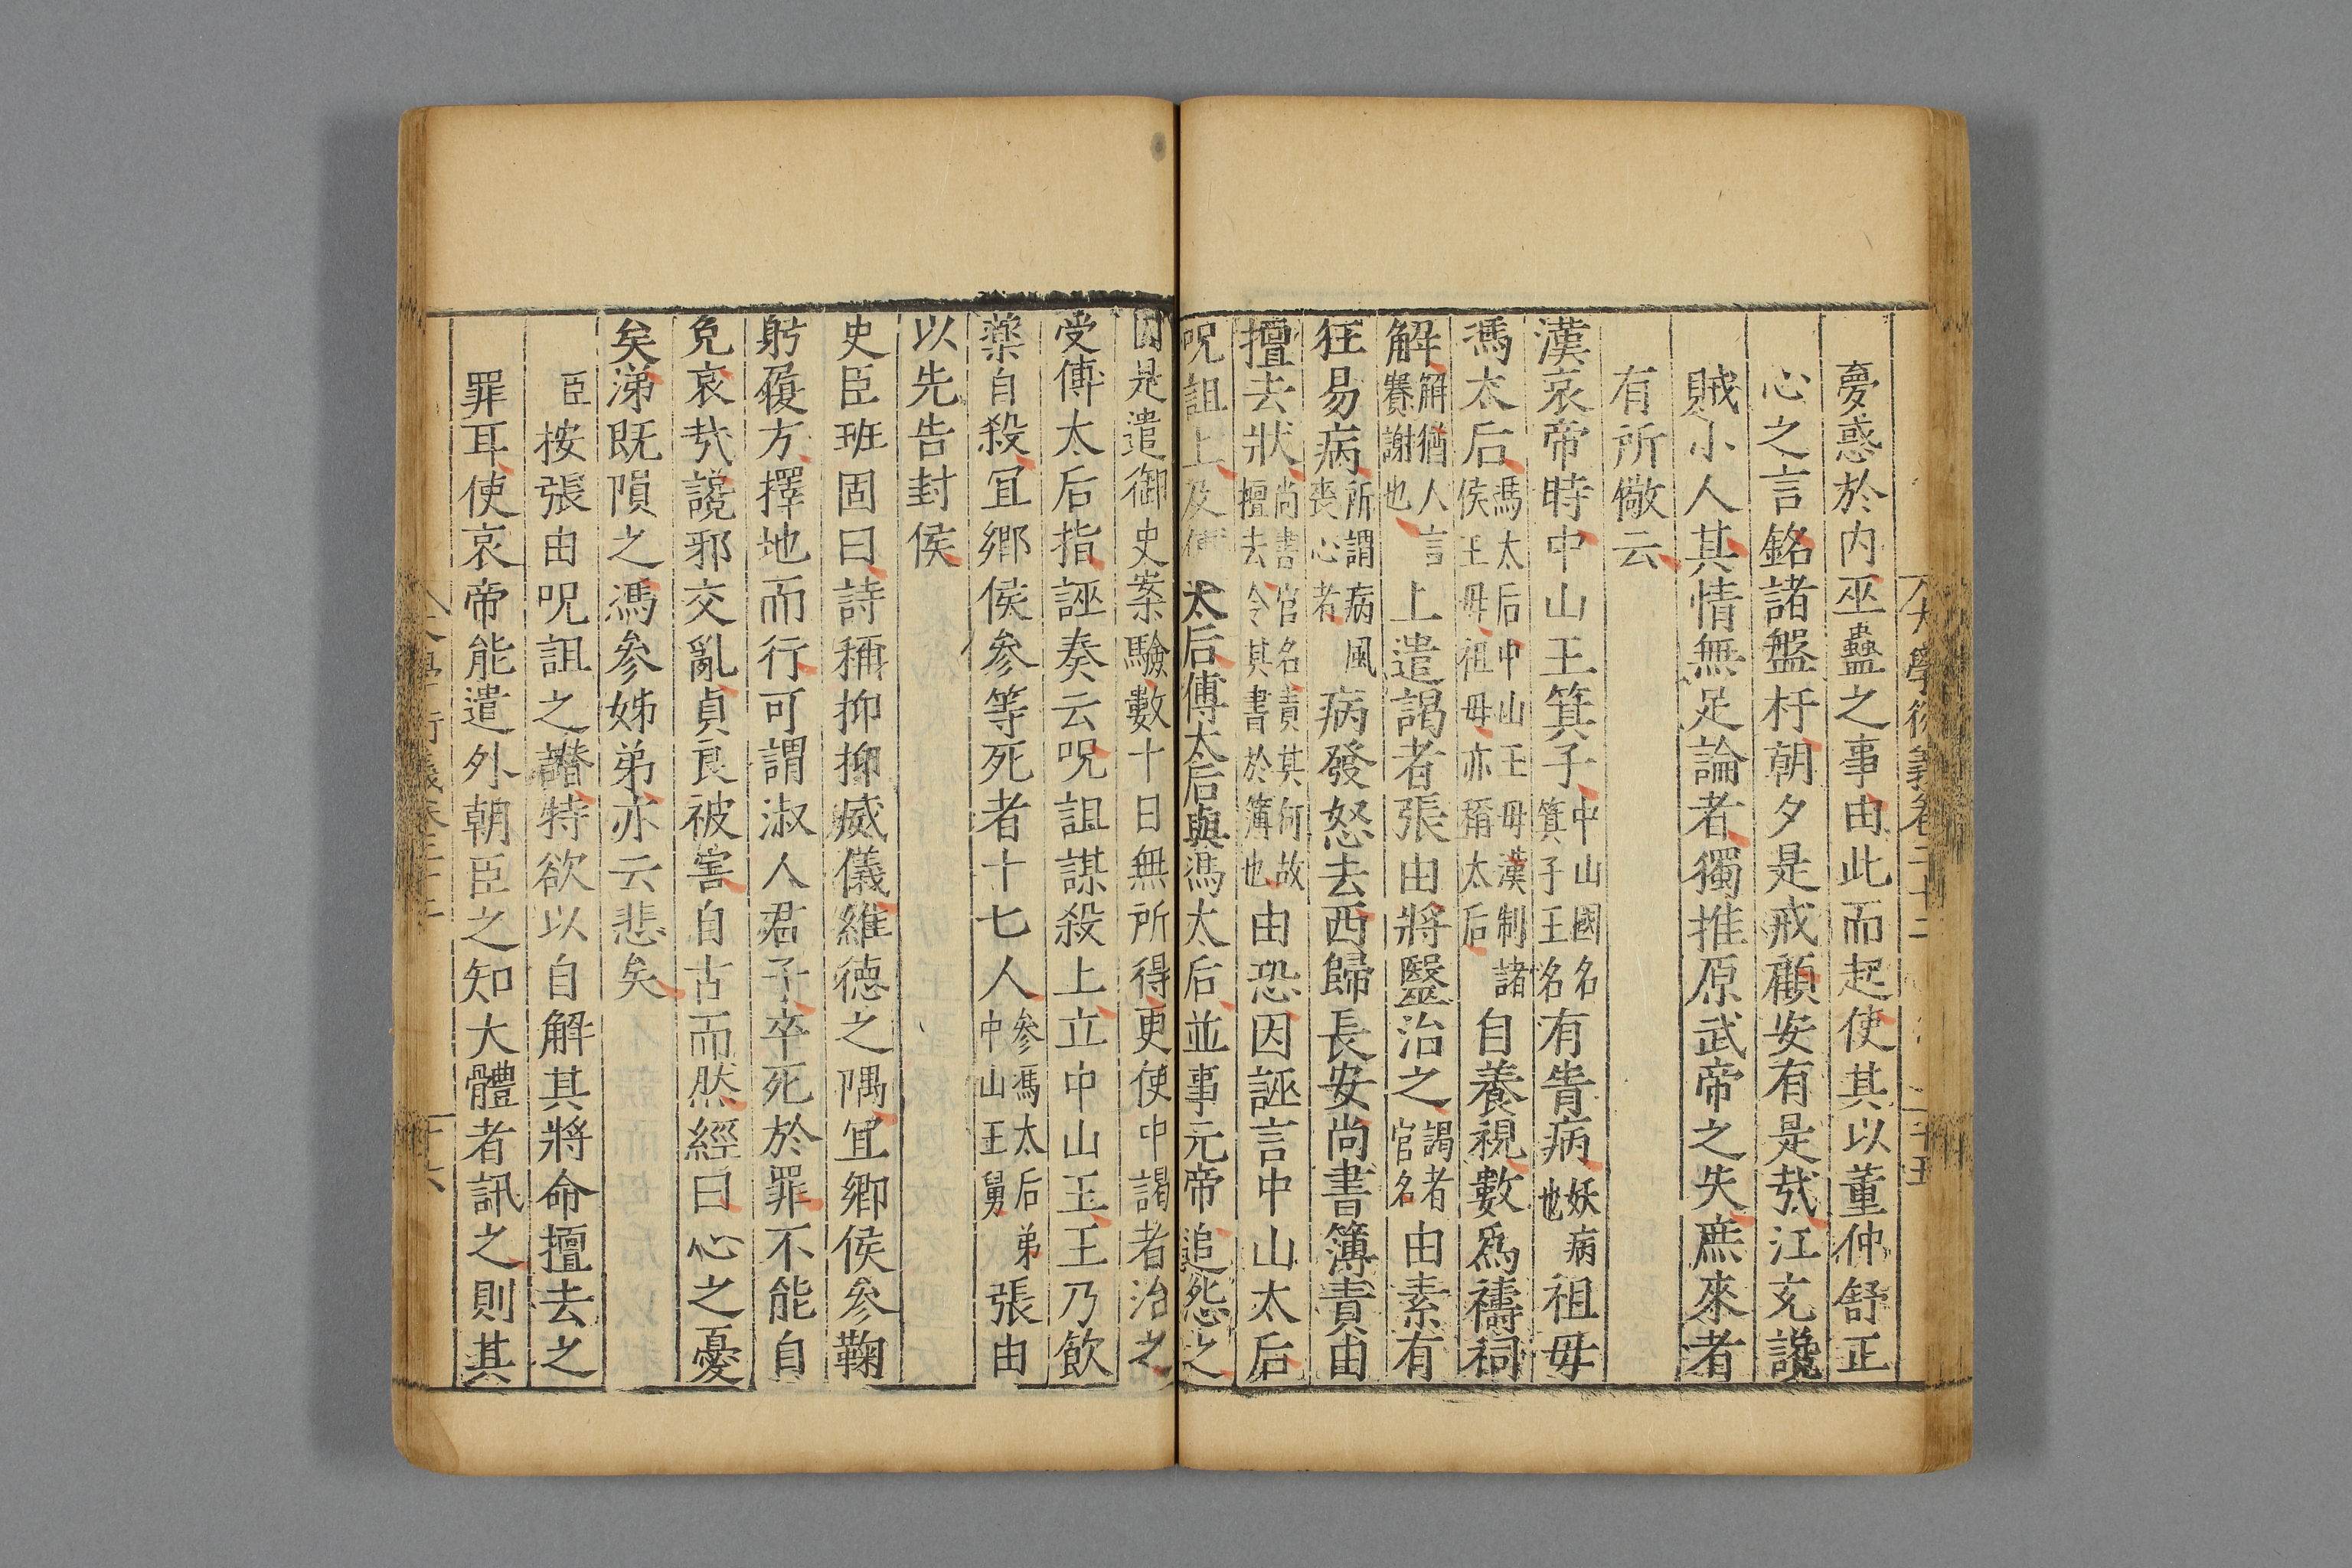 大學衍義卷二十二
二十五
夢惑於內巫蠱之事由此而起使其以董仲舒正
心之言銘諸盤杅朝夕是戒顧安有是㢤江充讒
賊小人其情無足論者獨推原武帝之失庶來者
有所儆云
漢哀帝時中山王箕子中山國名箕子王名有眚病妖病也祖母
馮太后馮太后中山王母漢制諸侯王母祖母亦稱太后自養視數爲禱祠
解解猶人言賽謝也上遣謁者張由將毉治之謁者官名由素有
狂易病所謂病風喪心者病發怒去西歸長安尚書簿責由
擅去狀尚書官名責其何故擅去令其書於簿也由恐因誣言中山太后
呪詛上及傅太后傅太后與馮太后並事元帝追怨之
因是遣御史案驗數十日無所得更使中謁者治之
受傅太后指誣奏云呪詛謀殺上立中山王王乃飲
藥自殺冝鄉侯參等死者十七人參馮太后弟中山王舅張由
以先告封侯
史臣班固曰詩稱抑抑威儀維德之隅冝鄉侯參鞠
躬履方擇地而行可謂淑人君子卒死於罪不能自
免哀㢤讒邪交亂貞良被害自古而然經曰心之憂
矣涕既隕之馮參姊弟亦云悲矣
臣按張由呪詛之譖特欲以自解其將命擅去之
罪耳使哀帝能遣外朝臣之知大體者訊之則其
大學衍義卷二十二
二十六